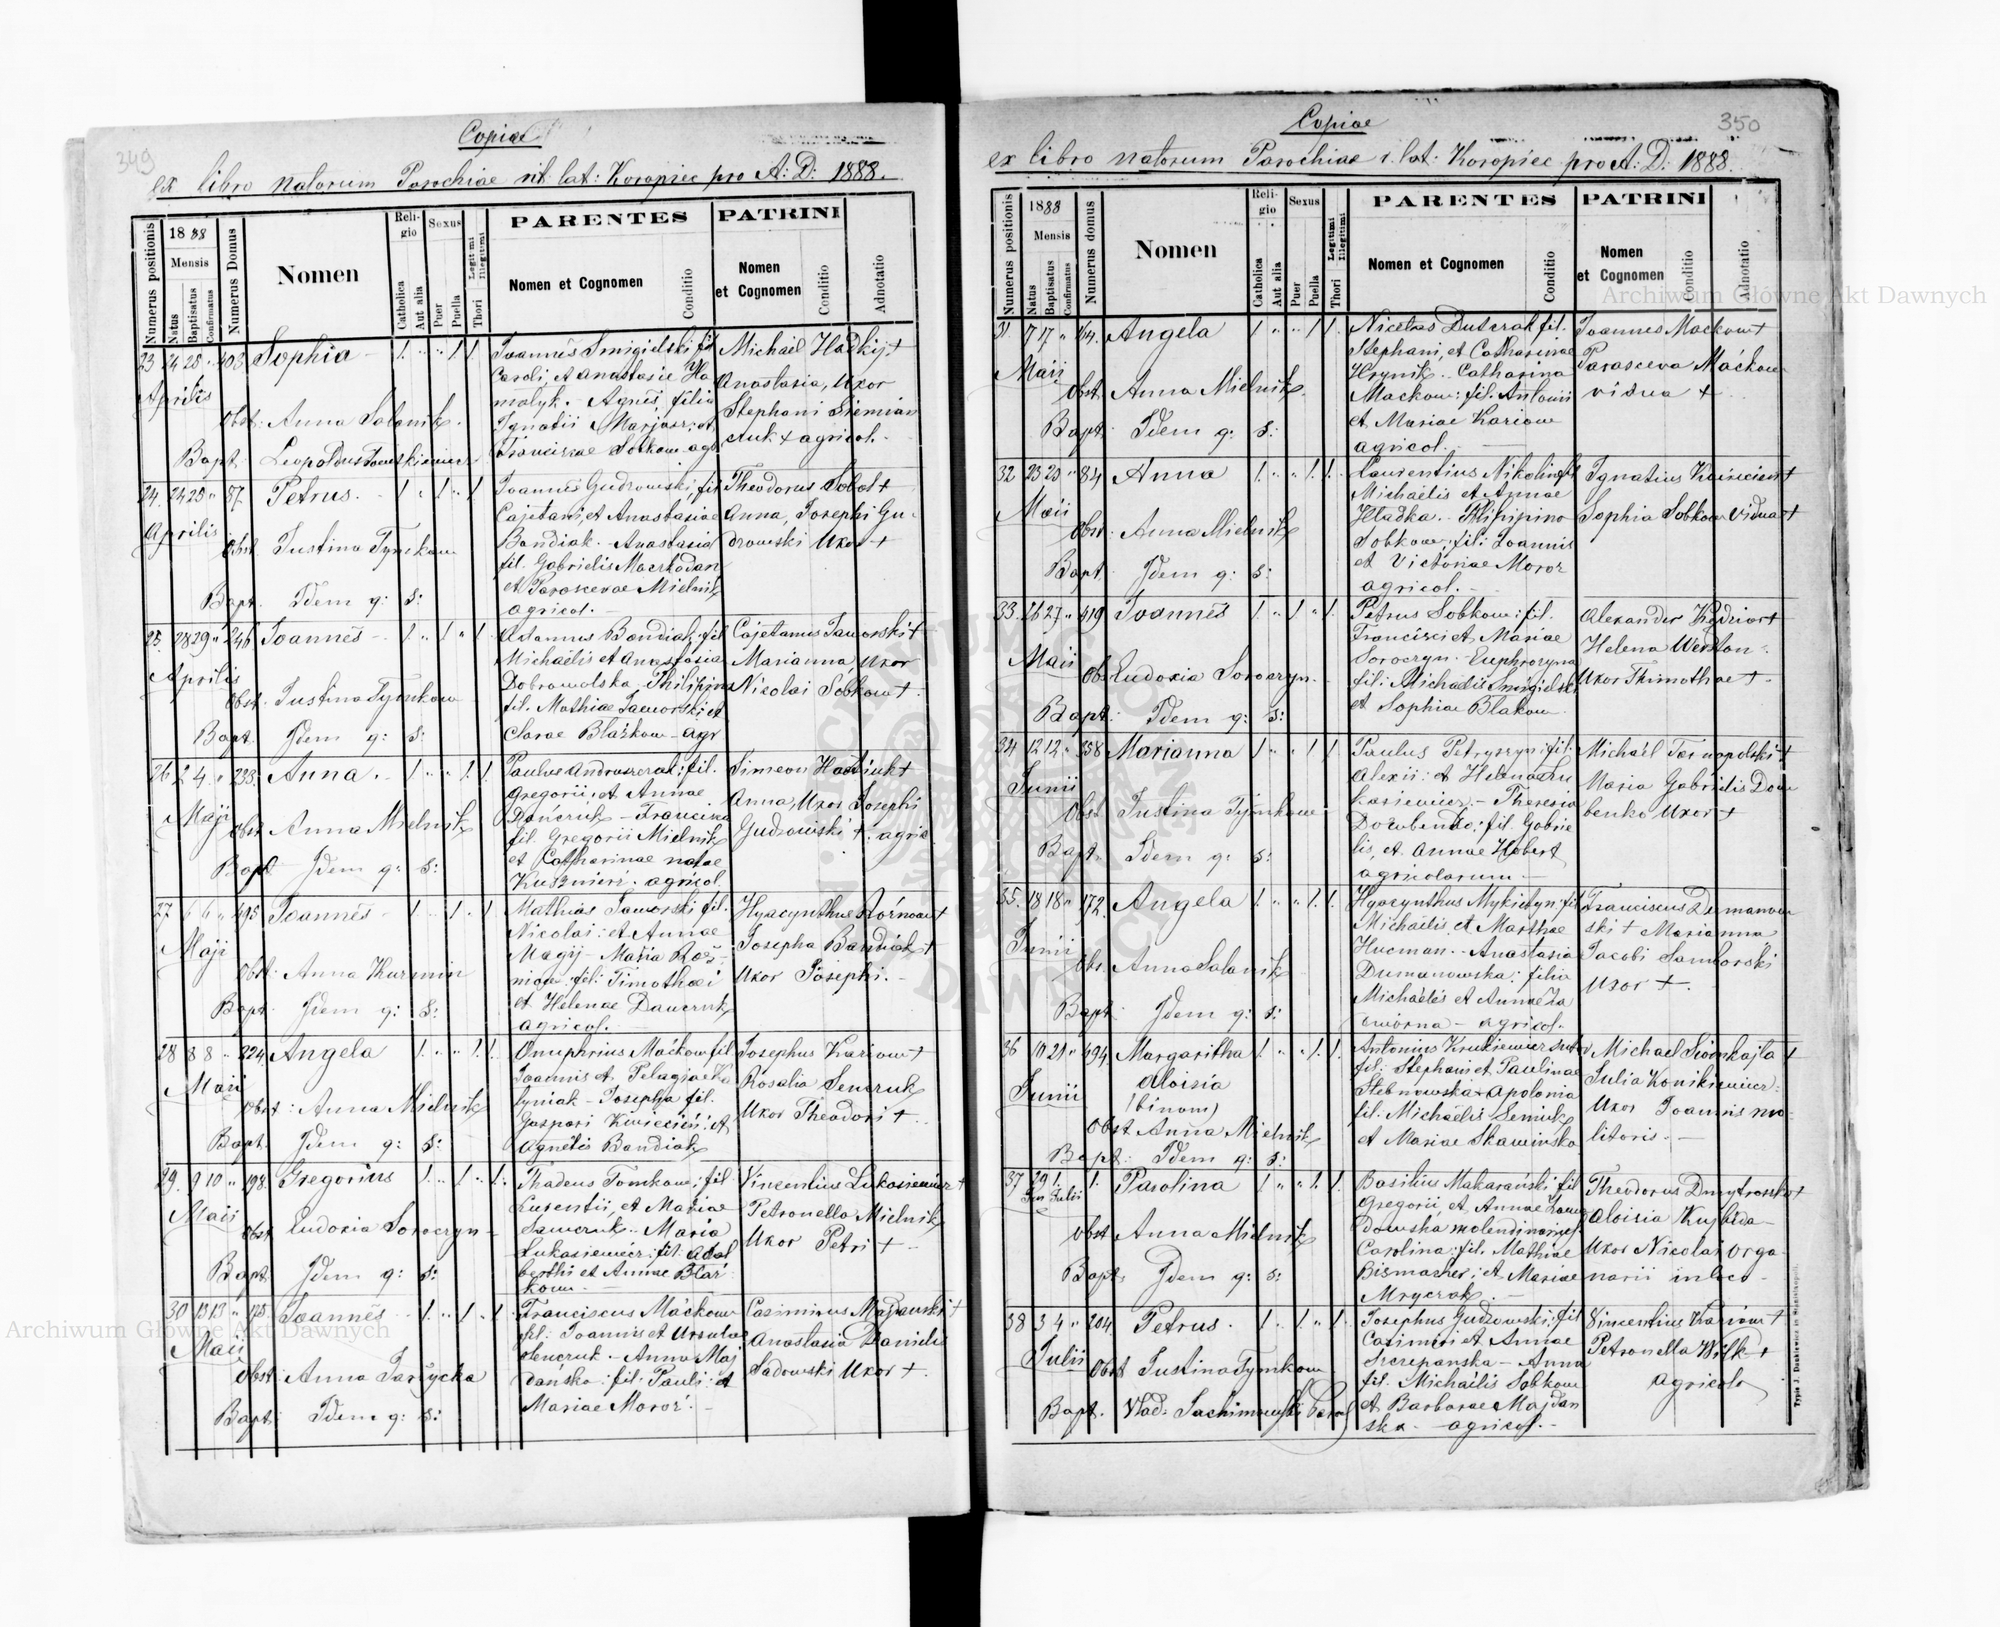 349
Copiae
ex libro natorum Parochiae rit: lat: Koropiec pro A: D: 1888.
Numerus positionis
1888
Mensis
Natus
Baptisatus
Confirmatus
Numerus Domus
Nomen
Religio
Catholica
Aut alia
Sexus
Puer
Puella
Thori
Legitimi
Illegitimi
PARENTES
Nomen et Cognomen
Conditio
PATRINI
Nomen
et Cognomen
Conditio
Adnotatio
23 24 25 " 403 Sophia 1. " " 1 1
Aprilis
Obst: Anna Solonik.
Bapt.
Joannes Smigielski fil
Caroli, et Anastasie Ha
molyk. - Agnes, filia
Ignatii
Franciscae Sobkow agr
Michael Hladkij +
Anastasia, Uxor
Stephani Siemian
czuk + agricol.
24. 24 25 " 57 Petrus. 1 " 1 " 1
Aprilis
Obst Justina Tymkow
Bapt. Idem q: s:
Joannes Gudzowski, fil
Cajetani, et Anastasiae
Bandiak. - Anastasia
fil. Gabrielis Maczkodan
et Parascevae Mielnik
agricol. -
Theodorus Sobol +
Anna, Josephi Gu-
drowski Uxor +
25. 28 29 " 246 Joannes - 1 " 1 " 1
Aprilis
Obst. Justina Tymkow
Bapt. Idem q: s:
Adamus Bandiak, fil
Michaelis et Anastasia
Dobrowolska - Philipina
fil. Mathiae Jaworski, et
Clarae Blażkow - agr
Cajetanus Jaworski +
Marianna, Uxor
Nicolai Sobkow +.
26 2 4. " 233. Anna. 1 " " 1. 1.
Maji
Obst Anna Mielnik
Bapt Idem q: s:
Paulus Andruszczak: fil.
Gregorii, et Annae
Dańczuk - Francisca
fil. Gregorii Mielnik
et Catharinae natae
Kusznierz. agricol.
Simeon Hostiuk +
Anna, Uxor Josephi
Gudzowski +. agric
27 6 6 " 495 Joannes - 1 " 1 " 1
Maji
Obst. Anna Kuzmin
Bapt Idem q: s:
Mathias Jaworski fil.
Nicolai: et Annae
Magij - Maria Roż-
niow. fil: Timothaei
et Helenae Dawczuk
agricol. -
Hyacynthus Rożniow +
Josepha Bandiak +
Uxor Josephi. -
28 8 8 " 224. Angela 1. " " 1. 1
Maii
Obst: Anna Mielnik
Bapt. Idem q: s:
Onuphrius Maćkow fil
Joannis et Pelagiae Ka
tyniak - Josepha fil.
Gaspari Kwiecień: et
Agnetis Bandiak
Josephus Kariow +
Rosalia Senczuk
Uxor Theodori +
29. 9 10 " 198. Gregorius 1. " 1 " 1.
Maii
Obst Eudoxia Soroczyn -
Bapt. Idem q: s:
Thadeus Tomkow; fil
Laurentii, et Mariae
Sawczuk. Maria
Łukasiewicz: fil. Adal
berthi et Annae Błaż
kow. -
Vincentius Łukasiewicz +
Petronella Mielnik
Uxor Petri + -
30 13 13 " 125. Joannes - 1. " 1 " 1
Maii
Obst: Anna
Bapt: Idem q: s:
Franciscus Maćkow
fil: Joannis et Ursulae
Senczuk - Anna Maj
dańska: fil: Pauli: et
Mariae Moroz. -
Casimirus Majdanski +
Anastasia Danielis
Sadowski Uxor +.
350
Copiae
ex libro natorum Parochiae r. lat: Koropiec pro A: D: 1888.
Numerus positionis
1888
Mensis
Natus
Baptisatus
Confirmatus
Numerus domus
Nomen
Religio
Catholica
Aut alia
Sexus
Puer
Puella
Thori
Legitimi
Illegitimi
PARENTES
Nomen et Cognomen
Conditio
PATRINI
Nomen
et Cognomen
Conditio
Adnotatio
31. 7 17 " Angela 1. " " 1 1.
Maii
Obst. Anna Mielnik.
Bapt. Idem q: s:
Nicetas Dutczak fil.
Stephani, et Catharinae
Hrynik. Catharina
Mackow: fil. Antonii
et Mariae Kariow
agricol.
Joannes Mackow +
Parasceva Maćkow
vidua +
32 23 25 " 84 Anna 1. " " 1. 1.
Maii
Obst: Anna Mielnik
Bapt. Idem q: s:
Laurentius Nikolin fil
Michaelis et Annae
Hladka. Philippina
Sobkow; fil: Joannis
et Victoriae Moroz
agricol. -
Ignatius Kwiecień +
Sophia Sobkow vidua +
33. 26 27 " 419 Joannes 1. " 1 " 1.
Maii
Obst Eudoxia Soroczyn.
Bapt: Idem q: s:
Petrus Sobkow: fil.
Francisci et Mariae
Soroczyn. - Euphrosyna
fil: Michaelis Smigielski
et Sophiae Blakow
Alexander Kędzior +
Helena Werston -
Uxor Thimothae +
34 12 12 " 258 Marianna 1 " " 1 1
Junii
Obst Justina Tymkow
Bapt. Idem q: s:
Paulus Petryszyn: fil.
Alexii: et Helenae Łu
kasiewicz. - Theresia
Dowbenko; fil. Gabrie
lis, et Annae Hobert
agricolarum -
Michael Tarnopolski +
Maria Gabrielis Dow
benko Uxor +
35. 18 18 " 172. Angela 1. " " 1. 1
Junii
Obs. Anna Solonik
Bapt. Idem q: s:
Hyacynthus Mykietyn: fil
Michaelis, et Marthae
Hucman. - Anastasia
Dumanowska: filia
Michaelis et Annae Za
twórna - agricol.
Franciscus Dumanow
ski + Marianna
Jacobi Samborski
Uxor +.
36 10 21 " 494. Margaritha 1. " " 1. 1.
Aloisia
(binom)
Junii
Obst Anna Mielnik
Bapt: Idem q: s:
Antonius Krukiewicz sutor
fil: Stephani et Paulinae
Stebnowska - Apolonia
fil. Michaelis Semiuk
et Mariae Skawinska
Michael Siomkajla +
Julia Konikiewicz:
Uxor Joannis mo-
litoris. -
37 29 1. 1. Karolina 1. " " 1. 1.
Jun Julii
Obst Anna Mielnik
Bapt. Idem q: s:
Basilius Makarański fil
Gregorii, et Annae
dowska molendinarius
Carolina: fil. Mathiae
Bismacher; et Mariae
Mryczak. -
Theodorus Dmytrosko +
Aloisia Kujbida -
Uxor Nicolai orga
narii in loco -
38 3 4 " 204 Petrus. 1. " 1 " 1.
Julii
Obst Justina Tymkow
Bapt. Vlad: Jachimowski
Josephus Gudzowski; fil
Casimiri et Annae
Szczepanska - Anna
fil. Michaelis Sobkow
et Barbarae Majdan
ska - agricol. -
Vincentius Kariow +
Petronella Wilk +
agricola
Typis J. Dankiewicz in Stanislaopoli.
Archiwum Główne Akt Dawnych
Archiwum Główne Akt Dawnych